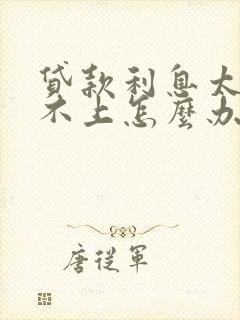 貸款利息太
不上怎麼办
唐從軍